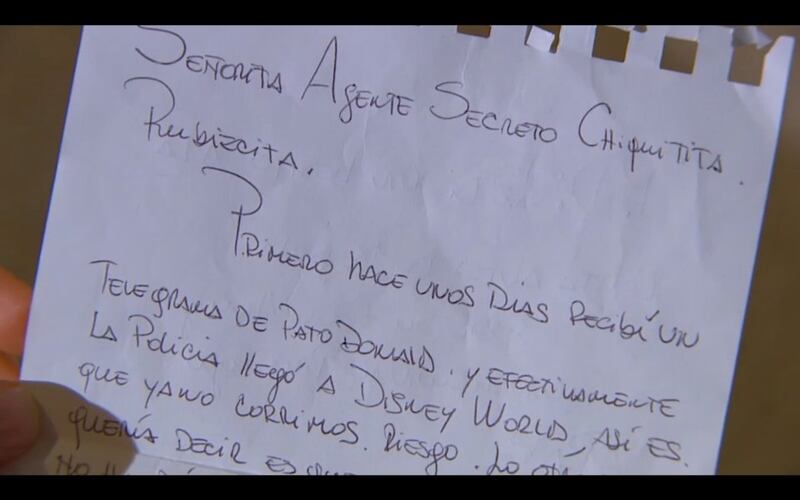 Señorita Agente Secreto Chiquitita.
Rubizcita.
Primero hace unos días recibí un
telegrama de Pato Donald. y efectivamente
la Policia llegó a Disney World, así es.
que ya no corrimos. riesgo. Lo otro
quería decir es que
No